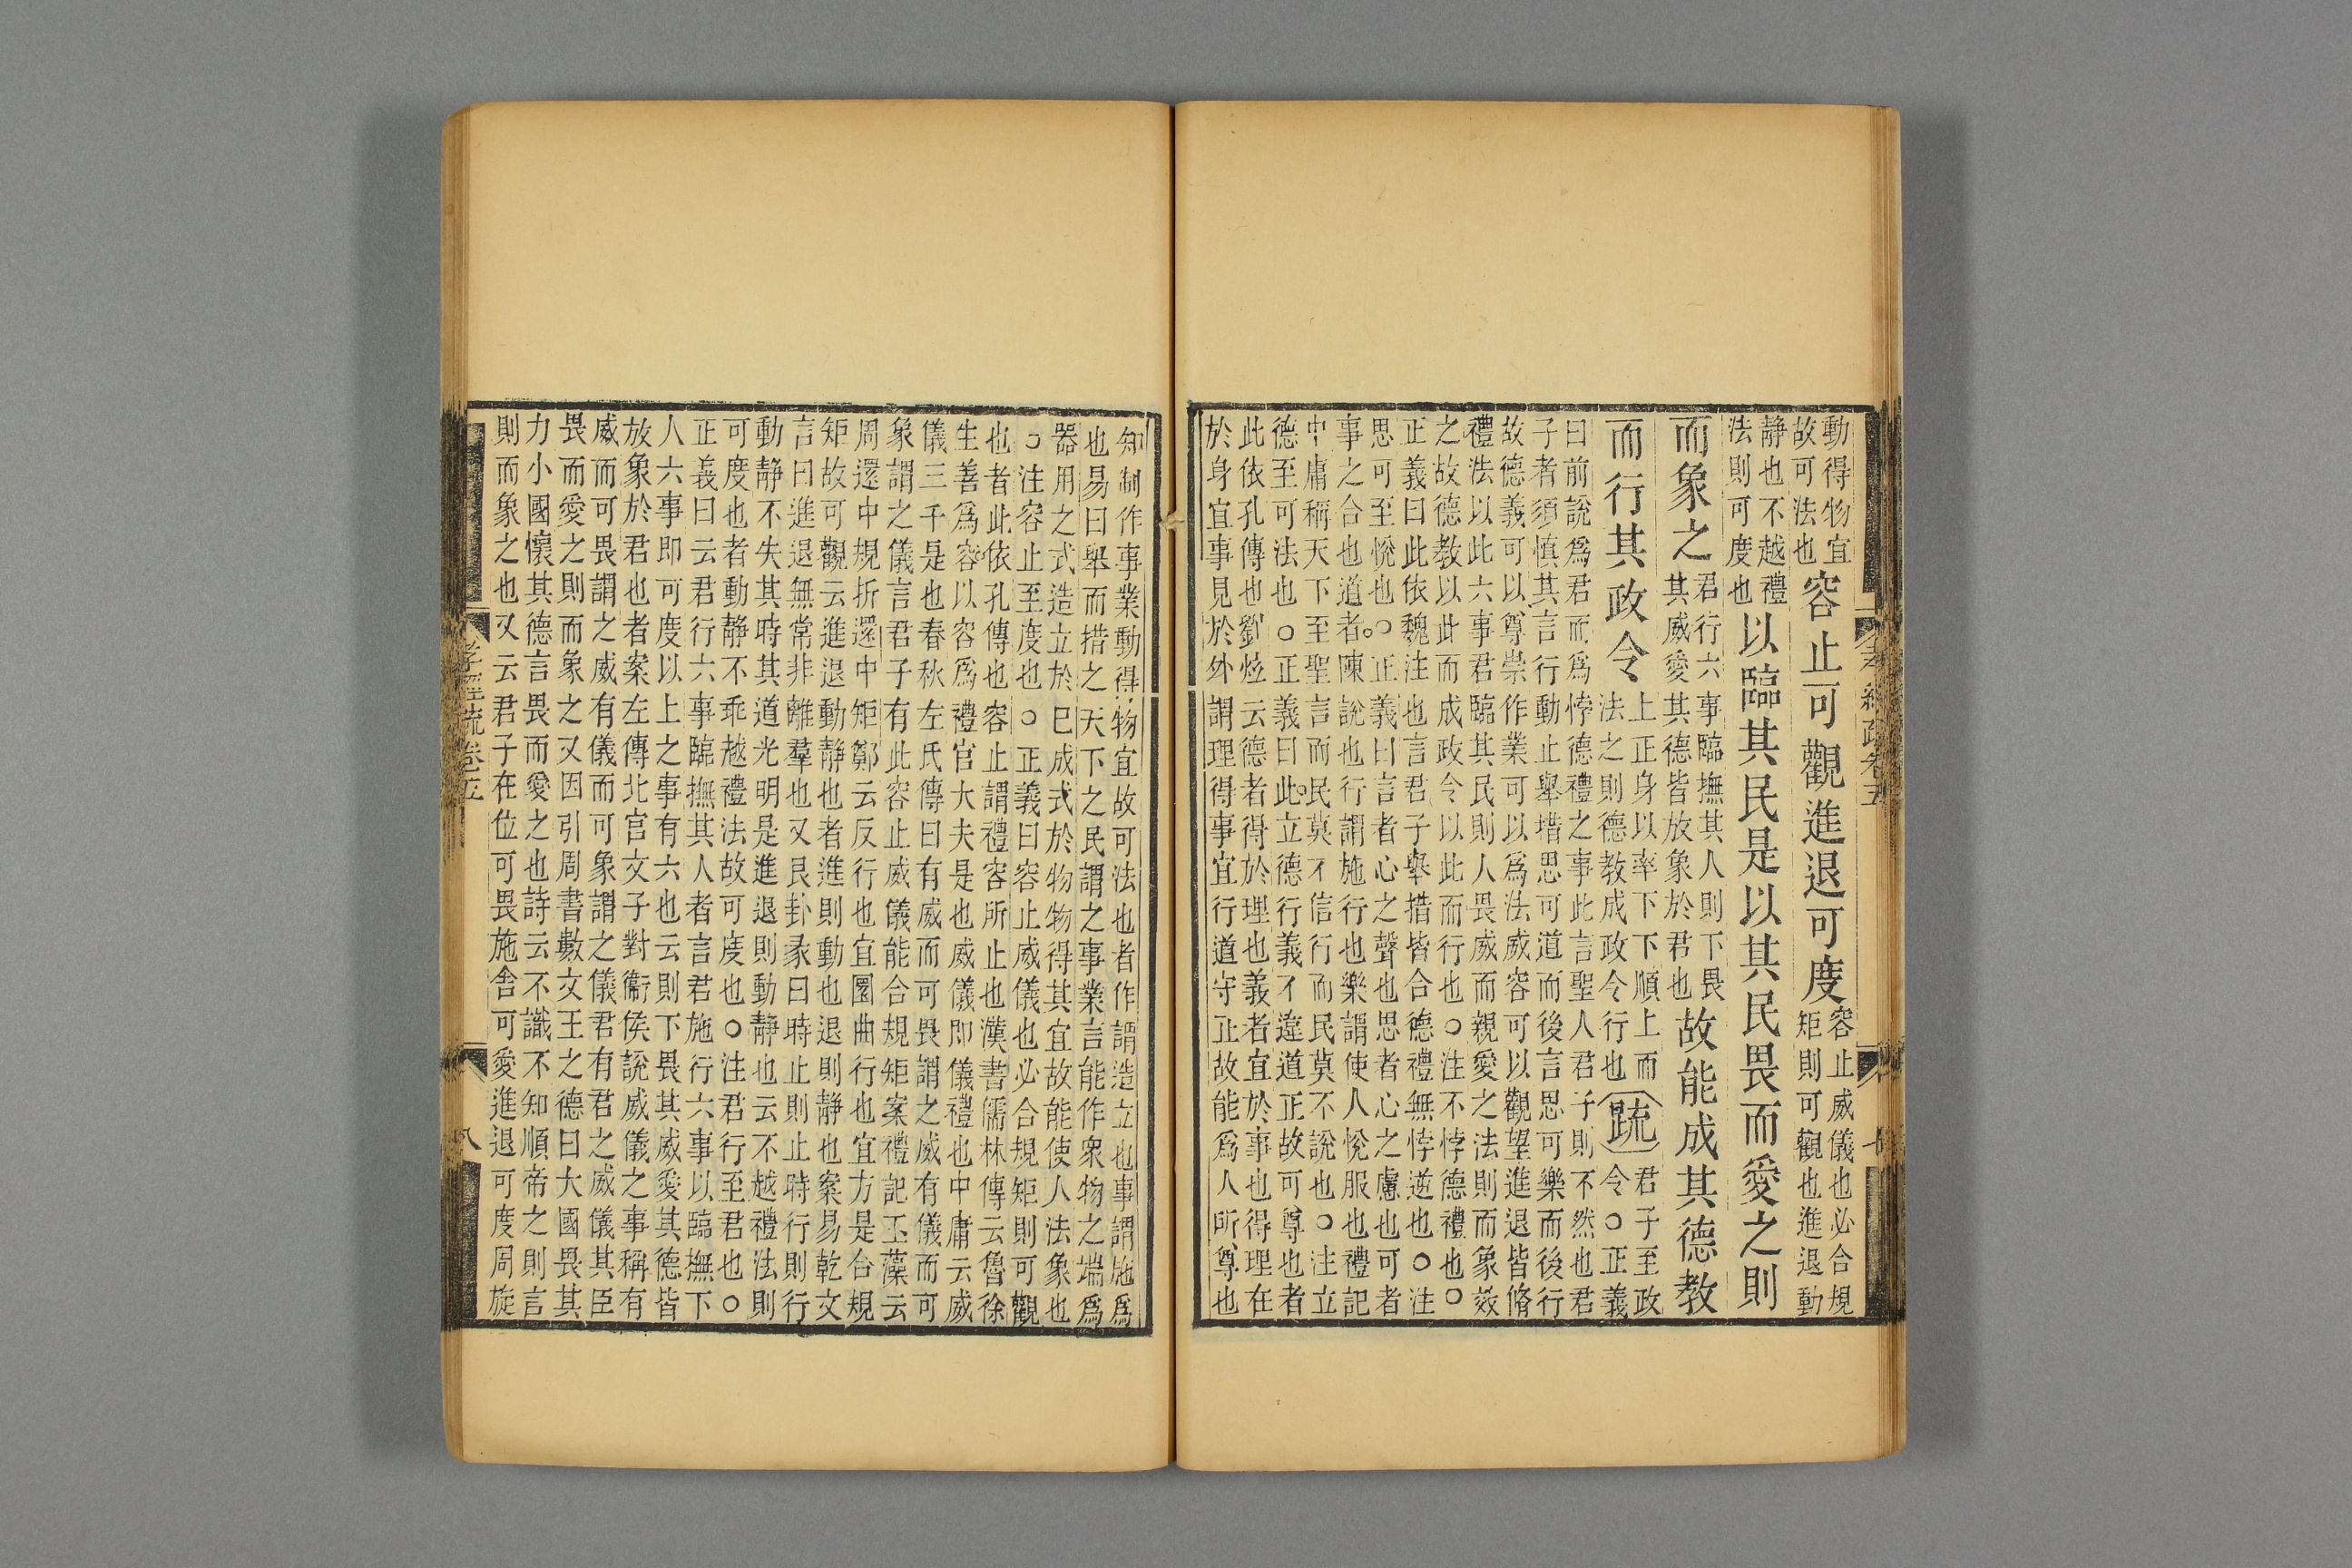 動得物宜故可法也容止可觀進退可度容止威儀也必合規矩則可觀也進退動
靜也不越禮法則可度也以臨其民是以其民畏而愛之則
而象之君行六事臨撫其人則下畏其威愛其德皆放象於君也故能成其德教
而行其政令上正身以率下下順上而法之則德教成政令行也疏君子至政令○正義
曰前說爲君而爲悖德禮之事此言聖人君子則不然也君
子者須慎其言行動止舉措思可道而後言思可樂而後行
故德義可以尊崇作業可以爲法威容可以觀望進退皆脩
禮法以此六事君臨其民則人畏威而親愛之法則而象效
之故德教以此而成政令以此而行也○注不悖德禮也○
正義曰此依魏注也言君子舉措皆合德禮無悖逆也○注
思可至悅也○正義曰言者心之聲也思者心之慮也可者
事之合也道者陳說也行謂施行也樂謂使人悅服也禮記
中庸稱天下至聖言而民莫不信行而民莫不說也○注立
德至可法也○正義曰此立德行義不違道正故可尊也者
此依孔傳也劉炫云德者得於理也義者宜於事也得理在
於身宜事見於外謂理得事宜行道守正故能爲人所尊也
知制作事業動得物宜故可法也者作謂造立也事謂施爲
也易曰舉而措之天下之民謂之事業言能作衆物之端爲
器用之式造立於已成式於物物得其宜故能使人法象也
○注容止至度也○正義曰容止威儀也必合規矩則可觀
也者此依孔傳也容止謂禮容所止也漢書儒林傳云魯徐
生善爲容以容爲禮官大夫是也威儀即儀禮也中庸云威
儀三千是也春秋左氏傳曰有威而可畏謂之威有儀而可
象謂之儀言君子有此容止威儀能合規矩案禮記玉藻云
周還中規折還中矩鄭云反行也宜圜曲行也宜方是合規
矩故可觀云進退動靜也者進則動也退則靜也案易乾文
言曰進退無常非離羣也又艮卦彖曰時止則止時行則行
動靜不失其時其道光明是進退則動靜也云不越禮法則
可度也者動靜不乖越禮法故可度也○注君行至君也○
正義曰云君行六事臨撫其人者言君施行六事以臨撫下
人六事即可度以上之事有六也云則下畏其威愛其德皆
放象於君也者案左傳北宮文子對衞侯說威儀之事稱有
威而可畏謂之威有儀而可象謂之儀君有君之威儀其臣
畏而愛之則而象之又因引周書數文王之德曰大國畏其
力小國懷其德言畏而愛之也詩云不識不知順帝之則言
則而象之也又云君子在位可畏施舍可愛進退可度周旋
孝經疏卷五
八